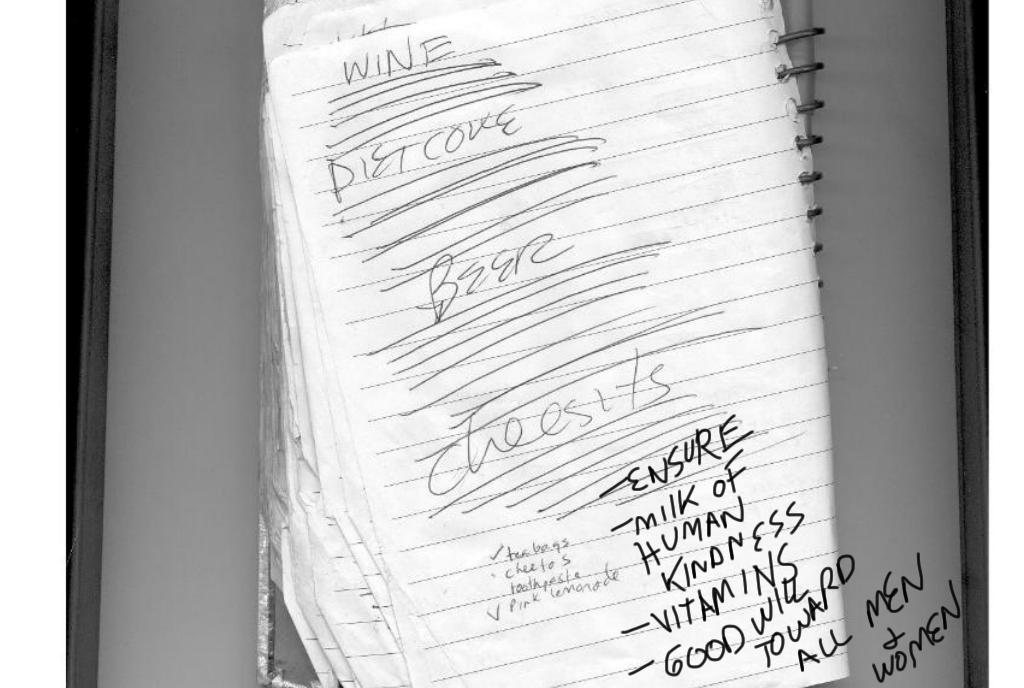 WINE
DIET COKE
BEER
cheesits
- ENSURE
- MILK OF
HUMAN
KINDNESS
- VITAMINS
- GOOD WILL
TOWARD
ALL MEN
&
WOMEN
✓ tea bags
cheetos
toothpaste
✓ Pink lemonade